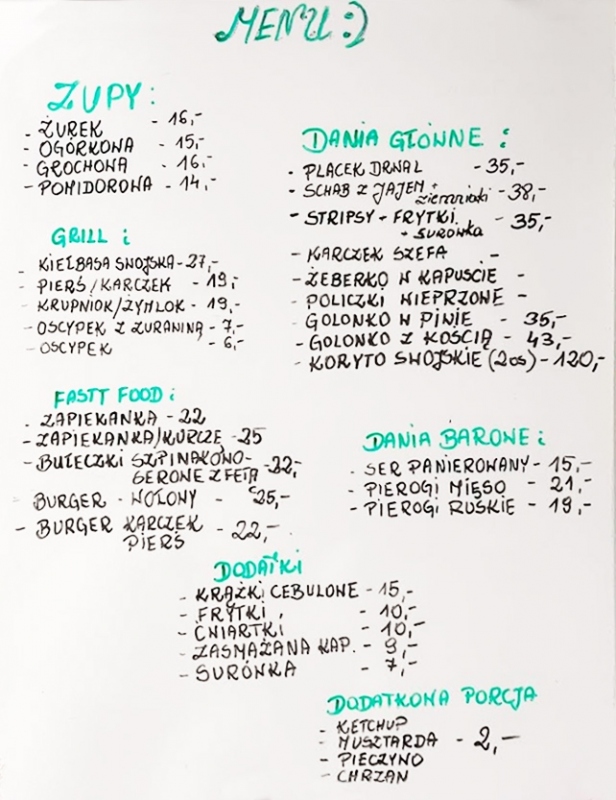 MENU :)
ZUPY:
- ŻUREK - 16,-
- OGÓRKOWA - 15,-
- GROCHOWA - 16.-
- POMIDOROWA - 14,-
GRILL :
- KIEŁBASA SWOJSKA - 27,-
- PIERŚ / KARCZEK - 19,-
- KRUPNIOK/ŻYMLOK - 19,-
- OSCYPEK Z ŻURAWINĄ - 7,-
- OSCYPEK - 6,-
FASTT FOOD :
- ZAPIEKANKA - 22
- ZAPIEKANKA/KURCZĘ - 25
- BUŁECZKI SZPINAKOWO-
SEROWE Z FETĄ - 22,-
BURGER - WOŁOWY - 25,-
- BURGER KARCZEK
PIERŚ - 22,-
DANIA GŁÓWNE :
- PLACEK DRWAL - 35,-
- SCHAB Z JAJEM +
ziemniaki - 38,-
- STRIPSY + FRYTKI
+ SURÓWKA - 35,-
- KARCZEK SZEFA -
- ŻEBERKO W KAPUŚCIE -
- POLICZKI WIEPRZOWE -
- GOLONKO W PIWIE - 35,-
- GOLONKO Z KOŚCIĄ - 43,-
- KORYTO SWOJSKIE (2os) - 120,-
DANIA BAROWE :
- SER PANIEROWANY - 15,-
- PIEROGI MIĘSO - 21,-
- PIEROGI RUSKIE - 19,-
DODATKI
- KRĄŻKI CEBULOWE - 15,-
- FRYTKI - 10,-
- ĆWIARTKI - 10,-
- ZASMAŻANA KAP. - 9,-
- SURÓWKA - 7,-
DODATKOWA PORCJA
- KETCHUP
- MUSZTARDA - 2,-
- PIECZYWO
- CHRZAN